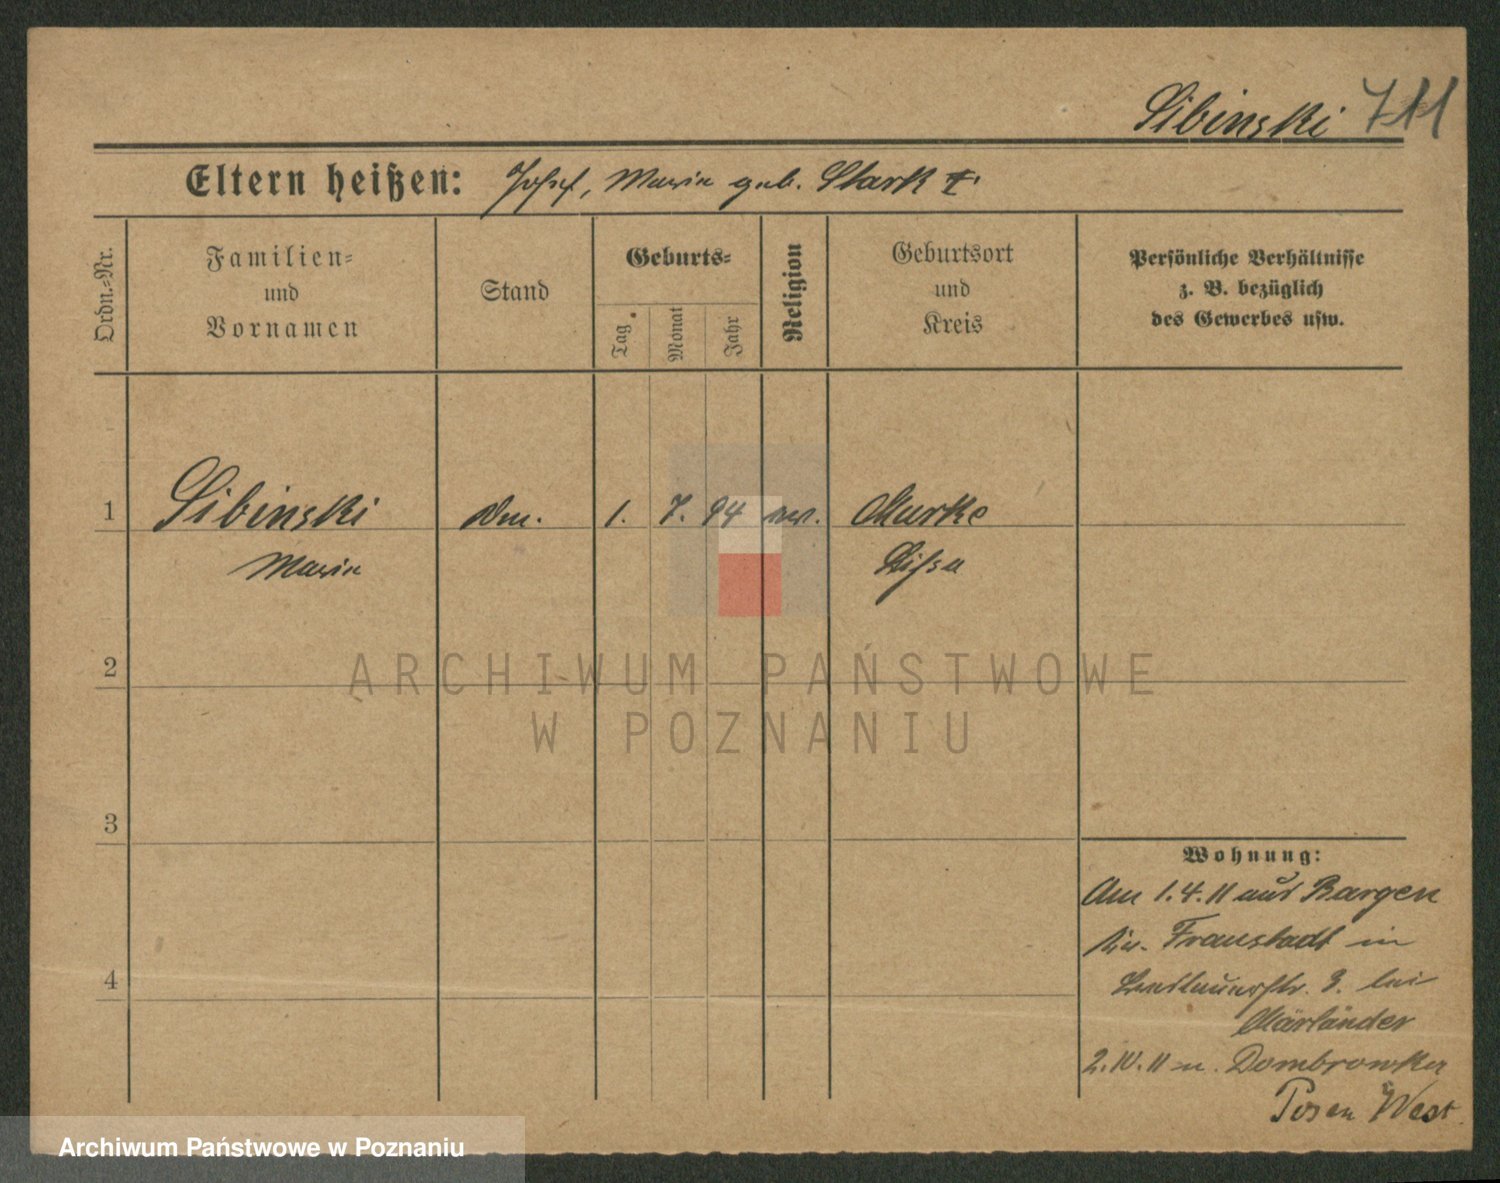 Sibinski 711
Eltern heißen: Josef, Maria geb. Stark †.
Ordn.-Nr.
Familien-
und
Vornamen
Stand
Geburts-
Tag.
Monat
Jahr
Religion
Geburtsort
und
Kreis
Persönliche Verhältnisse
z. B. bezüglich
des Gewerbes usw.
1 Sibinski 1. 7. 94 Murke
Maria Lissa
2
ARCHIWUM PAŃSTWOWE
W POZNANIU
3
4
Wohnung:
Am 1.4.11 aus Bargen
Kr. Fraustadt in
3. bei
2.IV.11 n. Dombrowka
Posen West
Archiwum Państwowe w Poznaniu